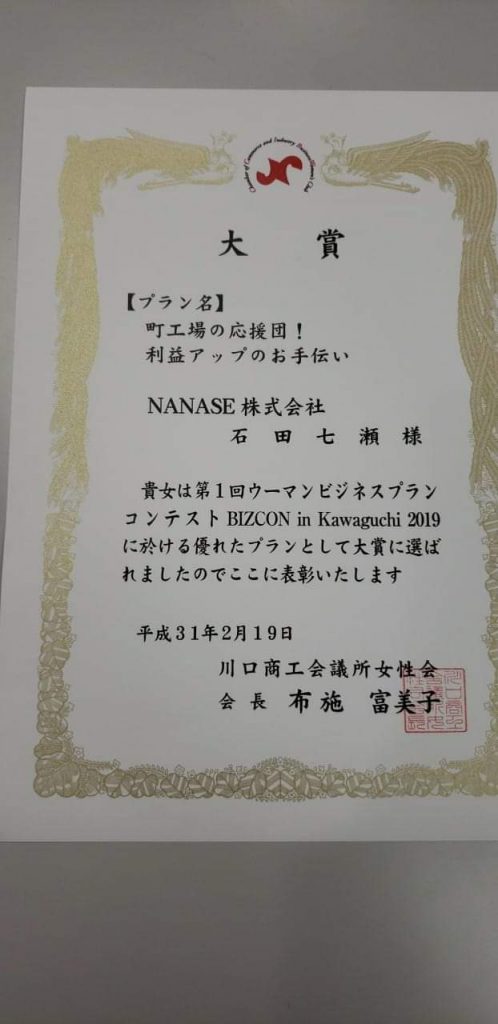 Chamber of Commerce and Industry BusinessWoman's Club
大 賞
【プラン名】
町工場の応援団！
利益アップのお手伝い
NANASE株式会社
石田七瀬様
貴女は第１回ウーマンビジネスプラン
コンテストBIZCON in Kawaguchi 2019
に於ける優れたプランとして大賞に選ば
れましたのでここに表彰いたします
平成３１年２月１９日
川口商工会議所女性会
会長 布施 富美子